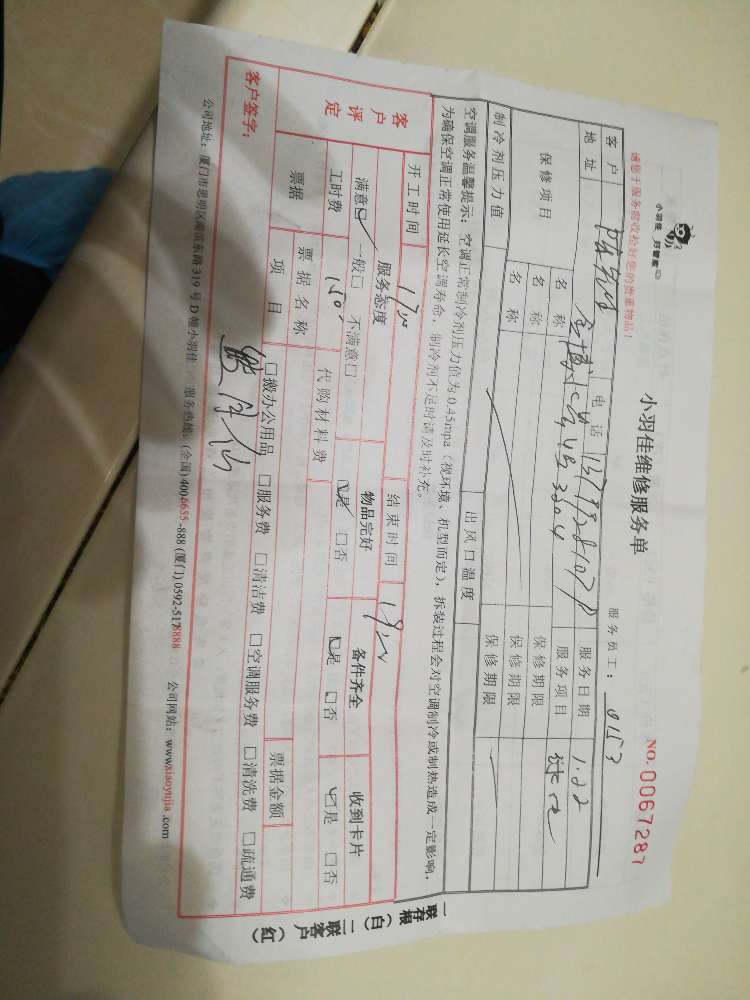 小羽佳 好管家
小羽佳维修服务单
NO. 0067287
请您于服务前收检好您的贵重物品！
服务员工： 0153
客户 电话 服务日期 1.22
地址 服务项目
保修项目 名称 保修期限
名称 保修期限
名称 保修期限
制冷剂压力值 出风口温度
空调服务温馨提示：空调正常制冷剂压力值为0.45mpa（视环境、机型而定），拆装过程会对空调制冷或制热造成一定影响，
为确保空调正常使用延长空调寿命，制冷剂不足时请及时补充。
开工时间 结束时间
客户评定 服务态度 物品完好 备件齐全 收到卡片
满意□ 一般□ 不满意□ □是 □否 □是 □否 □是 □否
工时费 150 代购材料费
票据 票据名称 票据金额
项目 □搬办公用品 □服务费 □清洁费 □空调服务费 □清洗费 □疏通费
客户签字：
公司地址：厦门市思明区 319号D幢小羽佳 服务热线：(全国)4004655-888 (厦门)0592-5178888 公司网站：www.xiaoyujia.com
一联存根（白） 二联客户（红）